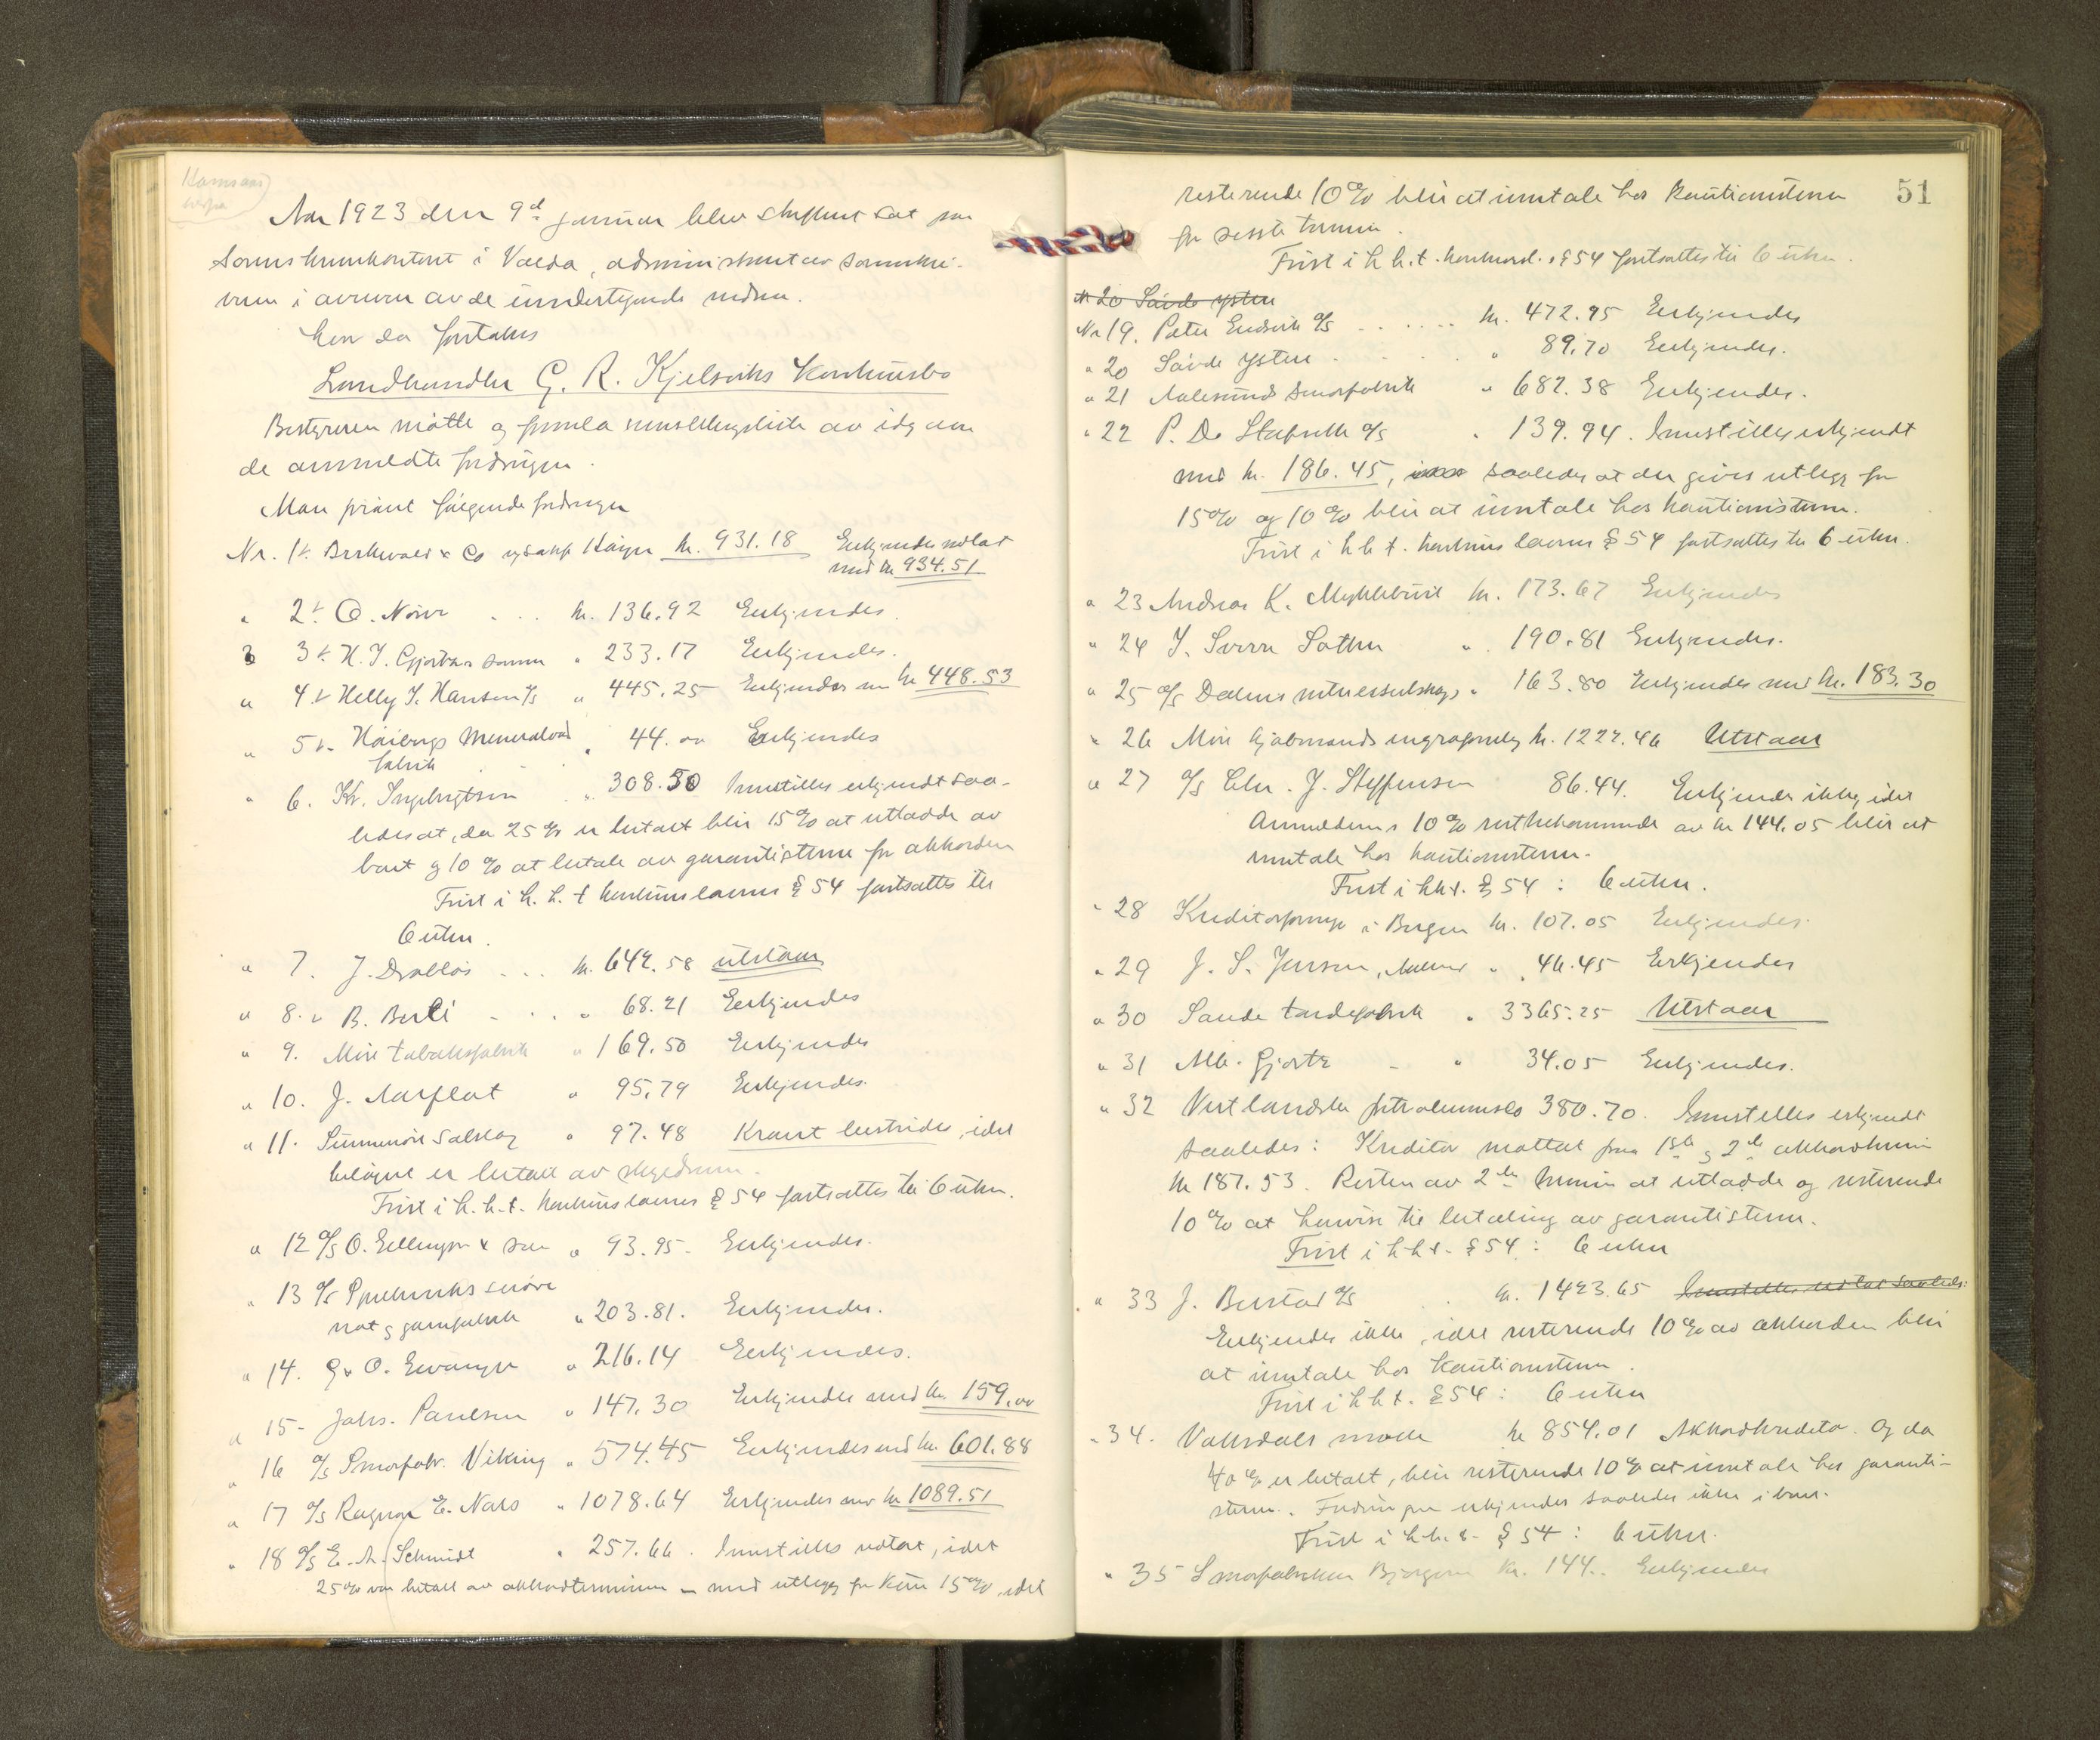 Aar 1923 den 9de januar blev skifteret sat paa
Sorenskriverkontoret i Volda, administrert av sorenskri-
veren i nærvær av de undertegnede vidner.
Hvor da foretokes
Landhandler G. R. Kjelsviks konkursbo
Bestyreren møtte og fremla innstillingsliste av idag over
de anmeldte fordringer.
Man prøvet følgende fordringer
Nr. 1. & Co kr. 931.18 Erkjendes
med kr 934.51
" 2. O. kr. 136.92 Erkjendes.
3 3. H. J. Gjørtz's sønner " 233.17 Erkjendes.
" 4. Helly J. Hansen A/S " 445.25 Erkjendes med kr 448.53
" 5. Mineralvand
fabrik " 44.00 Erkjendes
" 6. Kr. Ingebrigtsen " 308.50 Innstilles erkjendt saa-
ledes at, da 25 % er betalt blir 15 % at utlodde av
boet og 10 % at betale av garantisterne for akkorden
Frist i h. h. t konkurslovens § 54 fortsættes til
6 uker.
" 7. J. kr. 642.58 utstaar
" 8. B. " 68.21 Erkjendes
" 9. Møre tobaksfabrik " 169.50 Erkjendes
" 10. J. Aarflot " 95.79 Erkjendes.
" 11. Sunnmøre Salslag " 97.48 Kravet bestrides, idet
beløpet er betalt av skyldneren.
Frist i h. h. t. konkurslovens § 54 fortsættes til 6 uker.
" 12 A/S O. & søn " 93.95 Erkjendes.
" 13 A/S
not og garnfabrik " 203.81. Erkjendes.
" 14. O. " 216.14 Erkjendes.
" 15. Johs. Paulsen " 147.30 Erkjendes med kr. 159.00
" 16 A/S Smørfabr. Viking " 574.45 Erkjendes med kr. 601.88
" 17 A/S Ragnar E. " 1078.64 Erkjendes med kr 1089.51
" 18 A/S E. A. Schmidt " 257.66. Innstilles idet
25 % var betalt av akkordterminen – med utlegg for kun 15 %, idet
51
resterende 10 % blir at inntale hos kautionisterne
for siste termin.
Frist i h h. t. § 54 fortsættes til 6 uker.
Nr 20 Søvde ysteri
Nr 19. Peter A/S kr. 472.95 Erkjendes
" 20 Søvde Ysteri " 89.70 Erkjendes.
" 21 Aalesunds Smørfabrik " 682.38 Erkjendes.
" 22 P. A/S " 139.94. Innstilles erkjendt
med kr. 186.45, saaledes at der gives utlegg for
15 % og 10 % blir at inntale hos kautionisterne.
Frist i h h t. konkurslovens § 54 fortsættes til 6 uker.
" 23 Andreas K. Myklebust kr. 173.67 Erkjendes
" 24 J. " 190.81 Erkjendes.
" 25 A/S " 163.80 Erkjendes med kr. 183.30
" 26 Møre kjøbmands kr. 1227.46 Utstaar
" 27 A/S Chr. J. Steffensen 86.44. Erkjendes ikke, idet
anmelderens 10 % resttilkommende av kr 144.05 blir at
inntale hos kautionisterne.
Frist i h h t. § 54 : 6 uker.
" 28 i Bergen kr. 107.05 Erkjendes.
" 29 J. S. Jensen, " 46.45 Erkjendes
" 30 Sande tøndefabrik " 3365.25 Utstaar
" 31 Alb. Gjørtz " 34.05 Erkjendes.
" 32 Vestlandske petroleumsco 380.70. Innstilles erkjendt
saaledes: Kreditor mottat paa 1ste og 2den akkordtermin
kr 187.53. Resten av 2den termin at utlodde og resterende
10 % at henvise til betaling av garantisterne.
Frist i h h t. § 54 : 6 uker
" 33 J. A/S kr. 1423.65
Erkjendes ikke, idet resterende 10 % av akkorden blir
at inntale hos kautionisterne.
Frist i h h t. § 54 : 6 uker
" 34. Vaksdals mølle kr 854.01 Akkordkreditor. Og da
40 % er betalt, blir resterende 10 % at inntale hos garanti-
sterne. Fordringen erkjendes saaledes ikke i boet.
Frist i h h. t. § 54 : 6 uker.
" 35 Smørfabrikken Bjørgvin kr. 144.. Erkjendes